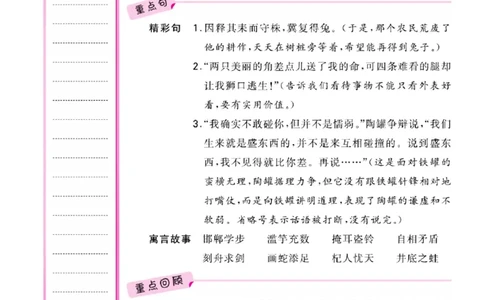 重点句
精彩句 1.因释其耒而守株,冀复得兔。(于是,那个农民荒废了
他的耕作,天天在树桩旁等着,希望能再得到兔子。)
2.“两只美丽的角差点儿送了我的命,可四条难看的腿却
让我狮口逃生!”(告诉我们看待事物不能只看外表好
看,要有实用价值。)
3.“我确实不敢碰你,但并不是懦弱。”陶罐争辩说,“我们
生来就是盛东西的,并不是来互相碰撞的。说到盛东
西,我不见得就比你差。再说……”(这是面对铁罐的
蛮横无理,陶罐据理力争,但它没有跟铁罐针锋相对地
打嘴仗,而是向铁罐讲明道理,表现了陶罐的谦虚和不
软弱。省略号表示话语被打断,没有说完。)
寓言故事 邯郸学步 滥竽充数 掩耳盗铃 自相矛盾
刻舟求剑 画蛇添足 杞人忧天 井底之蛙
重点回顾